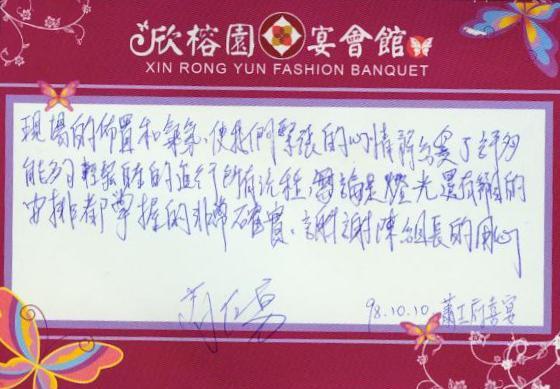 欣榕園宴會館
XIN RONG YUN FASHION BANQUET
現場的佈置和氣氛、使我們緊張的心情解緩了許多
能夠輕鬆自在的進行所有流程,無論是燈光還有細的
安排都掌握的非常確實、謝謝陳組長的用心
98.10.10. 蕭王府喜宴